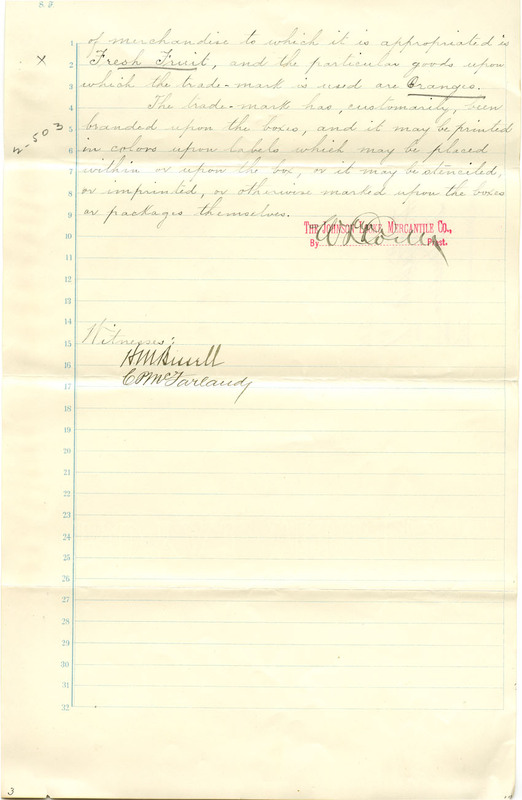 S. J.
1 of merchandise to which it is appropriated is
x 2 Fresh Fruit, and the particular goods upon
3 which the trade-mark is used are Oranges.
4 The trade-mark has, customarily, been
5 branded upon the boxes, and it may be printed
6 in colors upon labels which may be placed
7 within or upon the box, or it may be stenciled,
8 or imprinted, or otherwise marked upon the boxes
9 or packages themselves.
10 The Johnson- Mercantile Co.,
By Prest.
11
12
13
14
15 Witnesses:
16
17 C P McFarland
18
19
20
21
22
23
24
25
26
27
28
29
30
31
32
-503
3